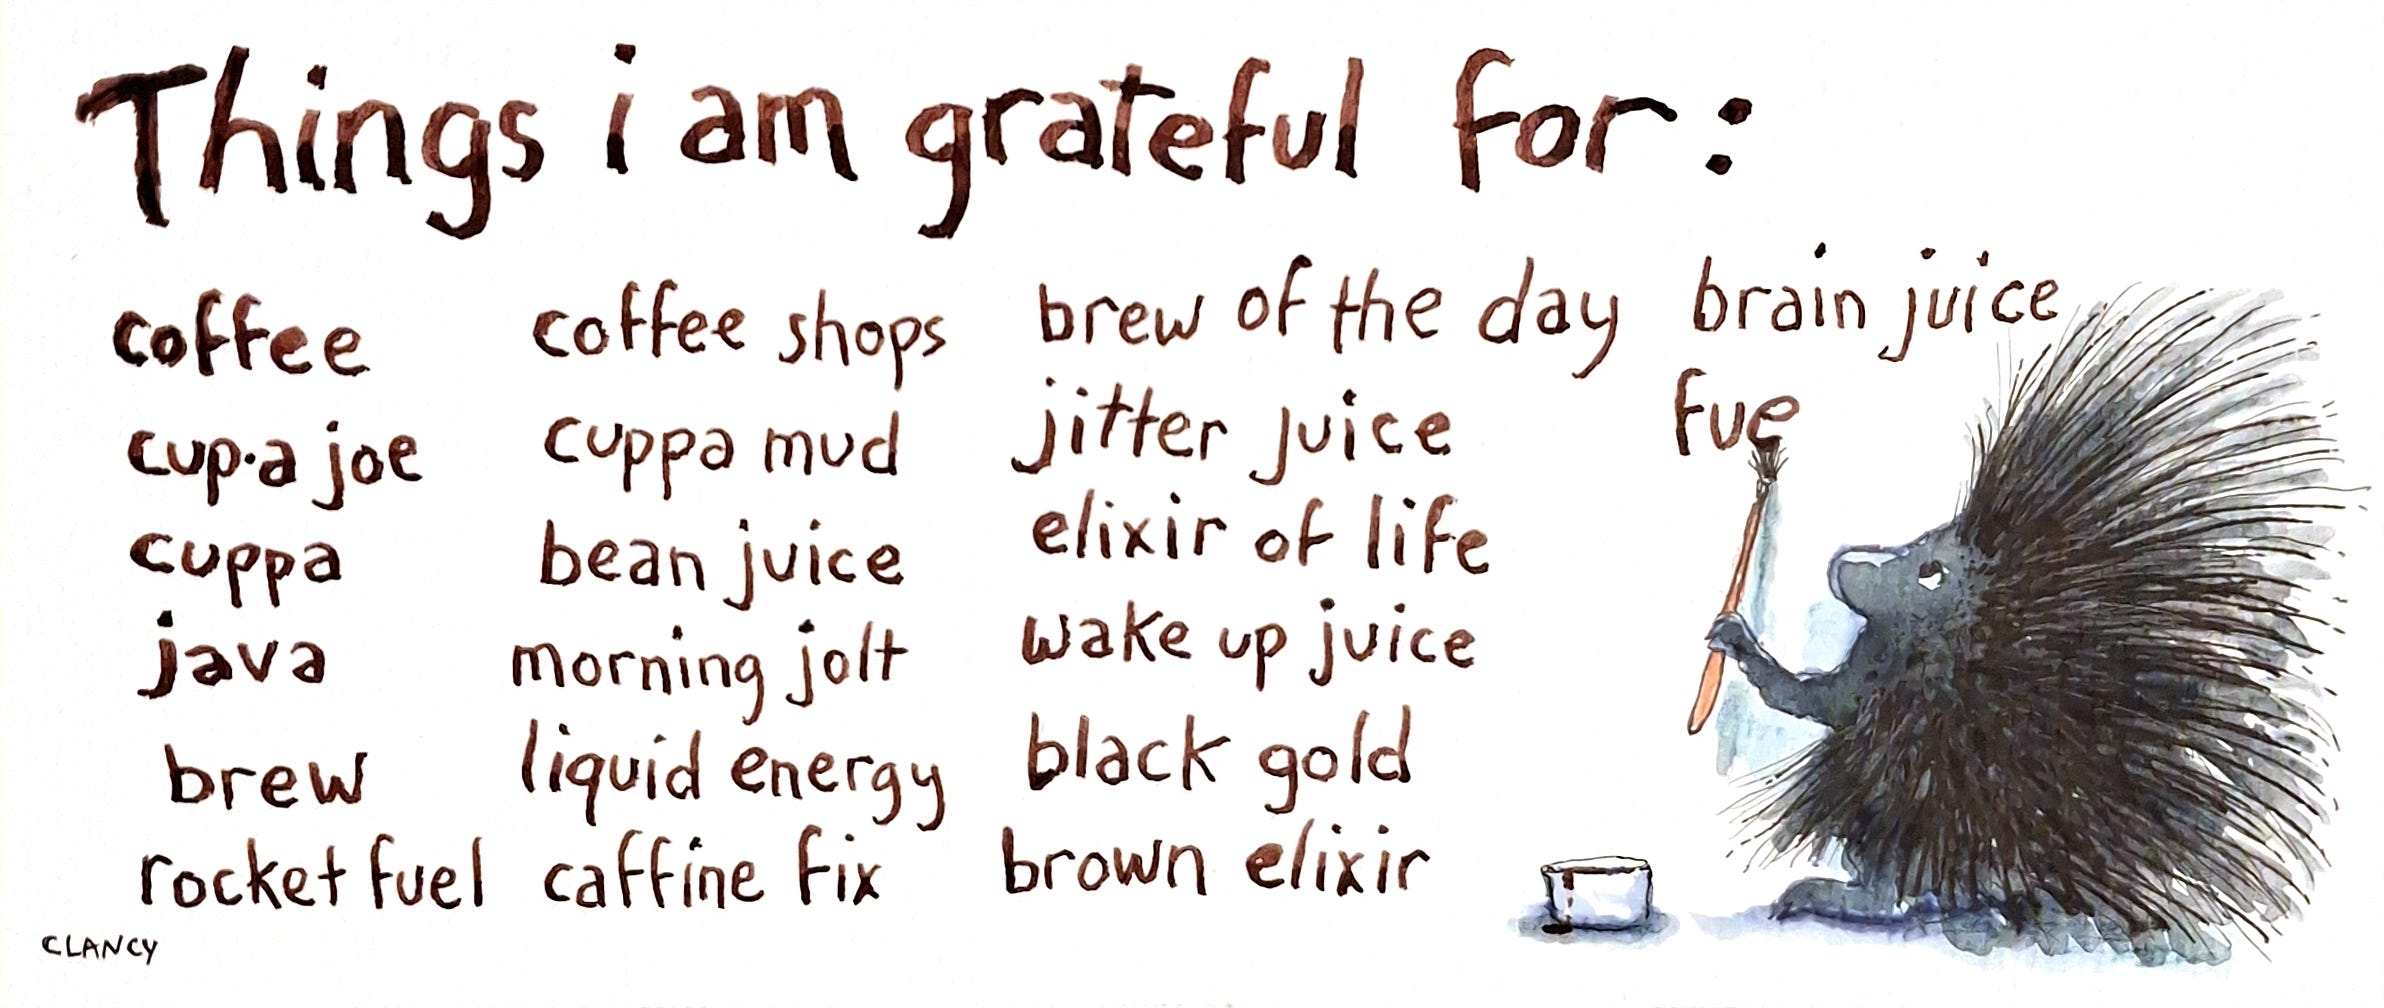 Things i am grateful for:
coffee
cup·a joe
cuppa
java
brew
rocket fuel
coffee shops
cuppa mud
bean juice
morning jolt
liquid energy
caffine fix
brew of the day
jitter juice
elixir of life
wake up juice
black gold
brown elixir
brain juice
fue
CLANCY